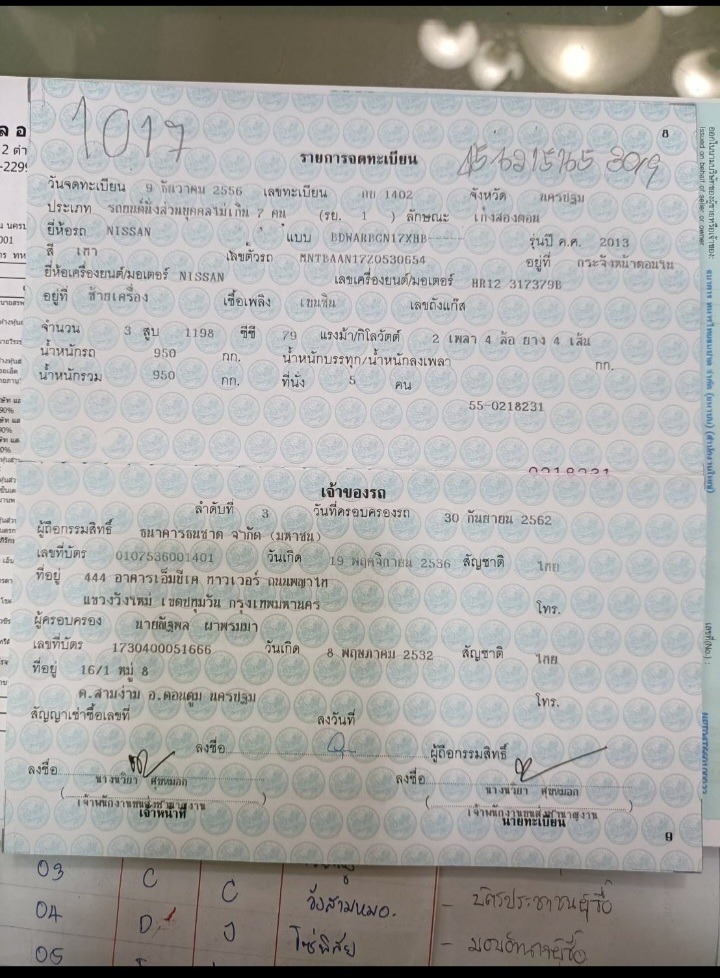 1017
8
รายการจดทะเบียน
วันจดทะเบียน 9 ธันวาคม 2556 เลขทะเบียน กย 1402 จังหวัด นครปฐม
ประเภท รถยนต์นั่งส่วนบุคคลไม่เกิน 7 คน (รย. 1 ) ลักษณะ เก๋งสองตอน
ยี่ห้อรถ NISSAN แบบ BDWARBGN17XHB รุ่นปี ค.ศ. 2013
สี เทา เลขตัวรถ MNTBAAN17Z0530654 อยู่ที่ กระจังหน้าตอนใน
ยี่ห้อเครื่องยนต์/มอเตอร์ NISSAN เลขเครื่องยนต์/มอเตอร์ HR12 317379B
อยู่ที่ ซ้ายเครื่อง เชื้อเพลิง เบนซิน เลขถังแก๊ส
จำนวน 3 สูบ 1198 ซีซี 79 แรงม้า/กิโลวัตต์ 2 เพลา 4 ล้อ ยาง 4 เส้น
น้ำหนักรถ 950 กก. น้ำหนักบรรทุก/น้ำหนักลงเพลา กก.
น้ำหนักรวม 950 กก. ที่นั่ง 5 คน
55-0218231
เจ้าของรถ
ลำดับที่ 3 วันที่ครอบครองรถ 30 กันยายน 2562
ผู้ถือกรรมสิทธิ์ ธนาคารธนชาต จำกัด (มหาชน)
เลขที่บัตร 0107536001401 วันเกิด 19 พฤศจิกายน 2536 สัญชาติ ไทย
ที่อยู่ 444 อาคารเอ็มบีเค ทาวเวอร์ ถนนพญาไท
แขวงวังใหม่ เขตปทุมวัน กรุงเทพมหานคร โทร.
ผู้ครอบครอง นายณัฐพล ผาพรมมา
เลขที่บัตร 1730400051666 วันเกิด 8 พฤษภาคม 2532 สัญชาติ ไทย
ที่อยู่ 16/1 หมู่ 8
ต.สามง่าม อ.ดอนตูม นครปฐม โทร.
สัญญาเช่าซื้อเลขที่ ลงวันที่
ลงชื่อ ผู้ถือกรรมสิทธิ์
ลงชื่อ ลงชื่อ
เจ้าหน้าที่ นายทะเบียน
9
03 C C
04 D วังสามหมอ. - บัตรประชาชนผู้ซื้อ
05 โซ่พิสัย - มอบอำนาจผู้ซื้อ